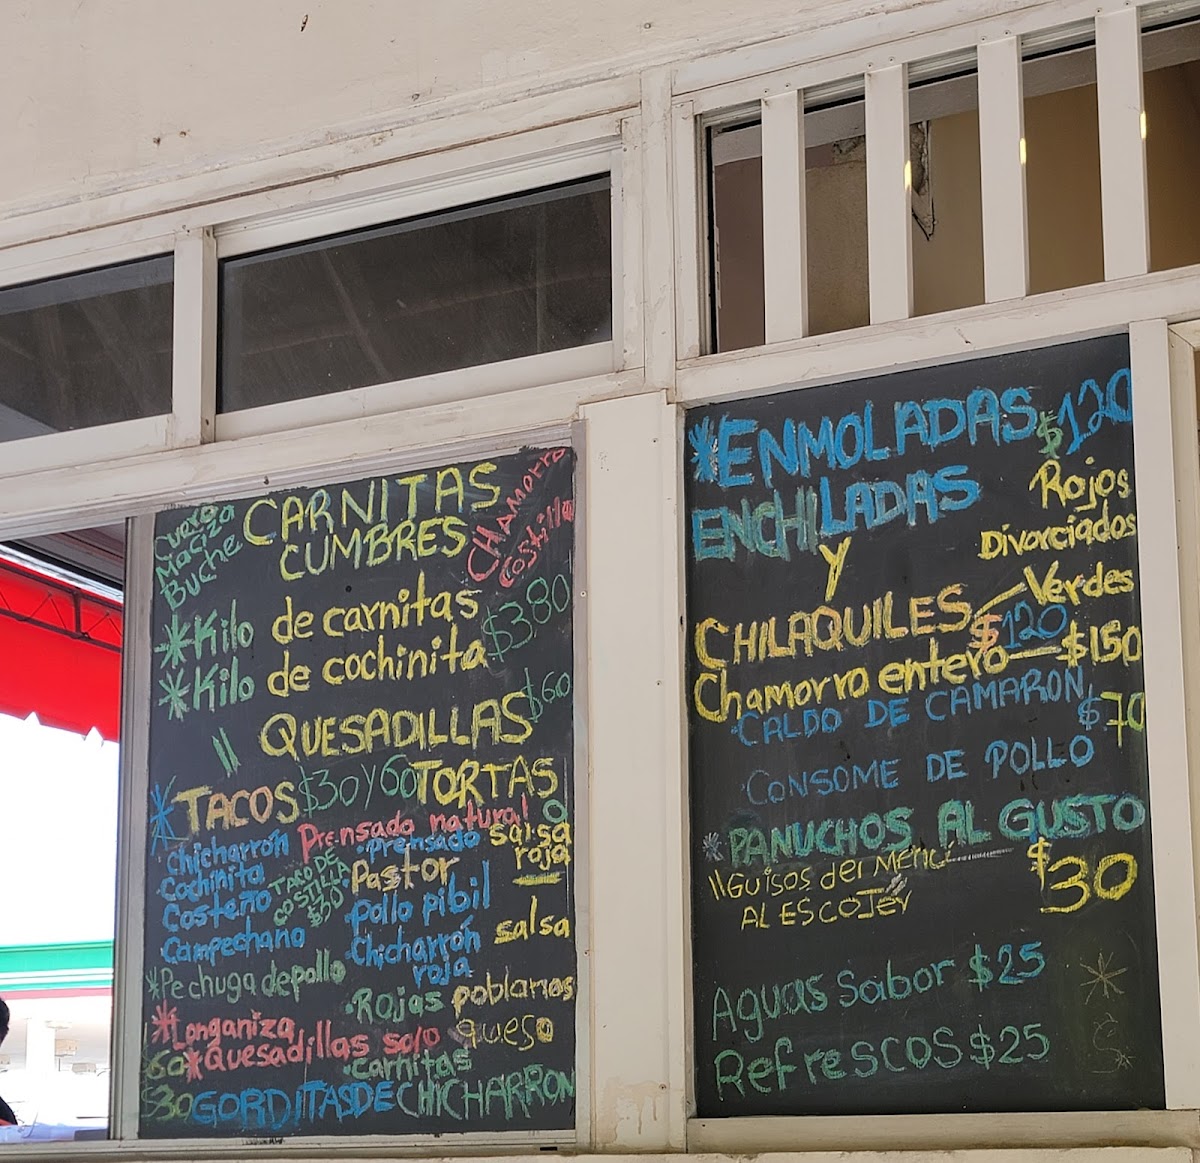 Cuero
Maciza
Buche
CARNITAS
CUMBRES
CHAmorro
Costilla
*Kilo de carnitas
*Kilo de cochinita
$380
\\ QUESADILLAS $60
*TACOS $30 Y 60 TORTAS
Prensado natural
Chicharrón
Cochinita
Costeño
Campechano
TACO DE
COSTILLA
$30
·Prensado salsa
roja
·Pastor
·Pollo pibil
·Chicharrón salsa
roja
*Pechuga de pollo
·Rajas poblanas
*Longaniza
queso
60 *Quesadillas solo
·Carnitas
$30 GORDITAS DE CHICHARRON
*ENMOLADAS $120
ENCHILADAS
Y
CHILAQUILES
Rojos
Divorciados
Verdes
$120
Chamorro entero — $150
·CALDO DE CAMARON
$70
CONSOME DE POLLO
*PANUCHOS AL GUSTO
\\GUISOS del MenCi
AL ESCOJEr
$30
Aguas Sabor $25
RefrescoS $25